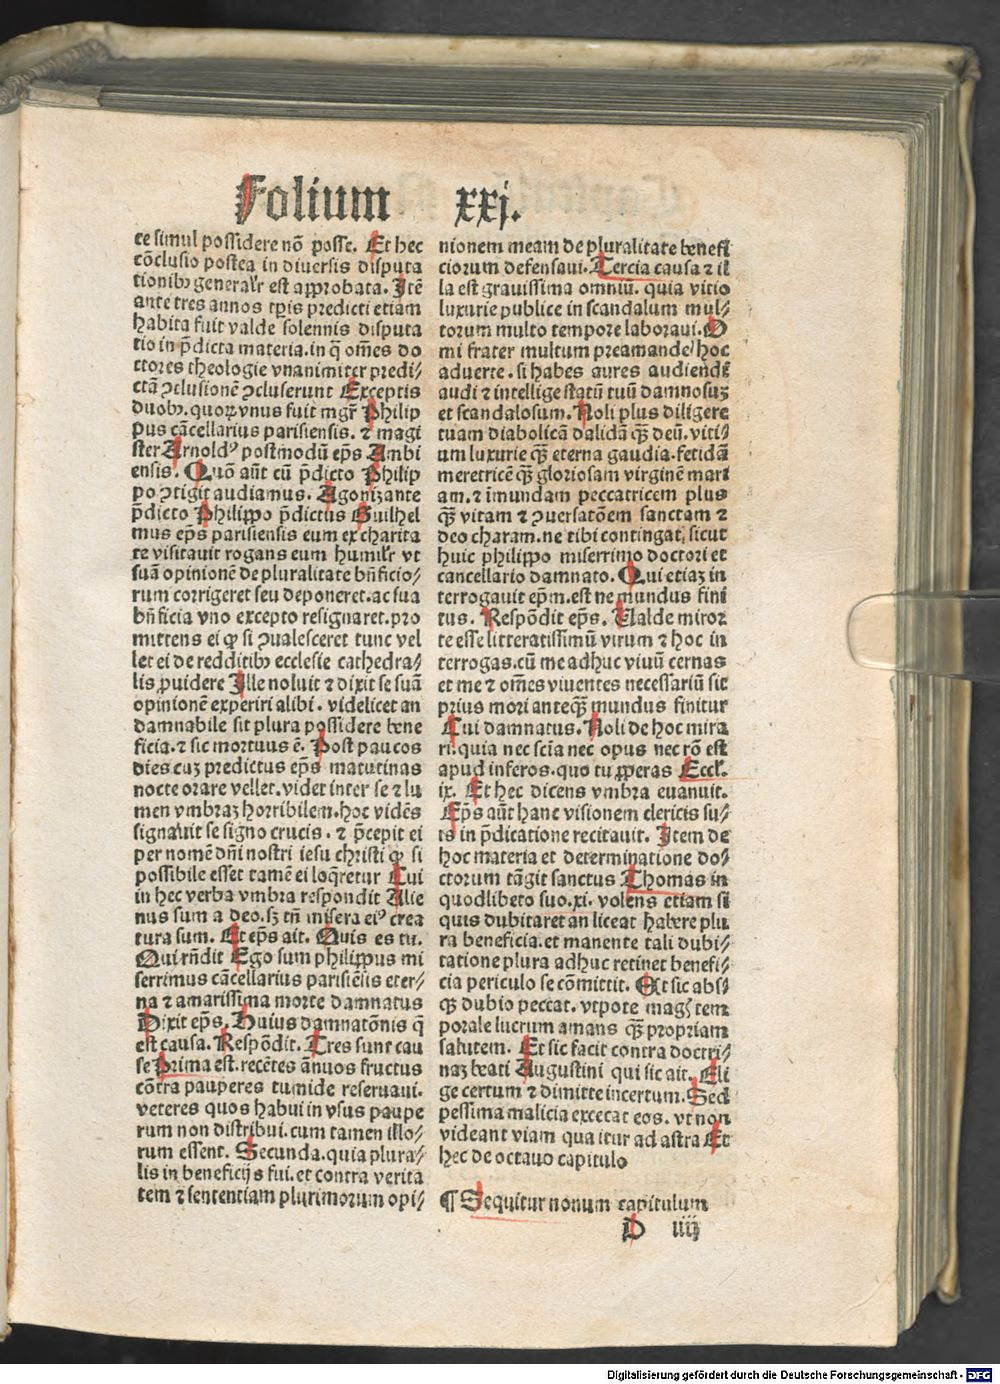 Folium xxj.
ce simul possidere nō posse. Et hec
cōclusio postea in diuersis disputa
tionibꝫ generalr̄ est approbata. Itē
ante tres annos tp̄is predicti etiam
habita fuit valde solennis disputa
tio in p̄dicta materia. in q̄ om̄es do
ctores theologie vnanimiter predi-
ctā ꝯclusionē ꝯcluserunt Exceptis
duobꝫ. quoꝝ vnus fuit mgr̄ Philip
pus cācellarius parisiensis. ⁊ magi
ster Arnoldꝰ postmodū ep̄s Ambi
ensis. Quō aūt cū p̄dicto Philip
po ꝯtigit audiamus. Agonizante
p̄dicto Philippo p̄dictus Guilhel
mus ep̄s parisiensis eum ex charita
te visitauit rogans eum humilr̄ vt
suā opinionē de pluralitate bn̄ficio/
rum corrigeret seu deponeret. ac sua
bn̄ficia vno excepto resignaret. pro
mittens ei ꝙ si ꝯualesceret tunc vel
let ei de redditibꝫ ecclesie cathedra/
lis ꝓuidere Ille noluit ⁊ dixit se suā
opinionē experiri alibi. videlicet an
damnabile sit plura possidere bene
ficia. ⁊ sic mortuus ē. Post paucos
dies cuꝫ predictus ep̄s matutinas
nocte orare vellet. videt inter se ⁊ lu
men vmbraꝫ horribilem. hoc vidēs
signauit se signo crucis. ⁊ p̄cepit ei
per nomē dn̄i nostri iesu christi ꝙ si
possibile esset tamē ei loq̄retur Cui
in hec verba vmbra respondit Alie
nus sum a deo. sꝫ tn̄ misera eiꝰ crea
tura sum. Et ep̄s ait. Quis es tu.
Qui rn̄dit Ego sum philippus mi
serrimus cācellarius parisiēsis eter-
na ⁊ amarissima morte damnatus
Dixit ep̄s. Huius damnatōnis q̄
est causa. Respōdit. Tres sunt cau
se Prima est. recētes ānuos fructus
cōtra pauperes tumide reseruaui.
veteres quos habui in vsus paupe
rum non distribui. cum tamen illo/
rum essent. Secunda. quia plura-
lis in beneficijs fui. et contra verita
tem ⁊ sententiam plurimorum opi/
nionem meam de pluralitate benefi
ciorum defensaui. Tercia causa ⁊ il
la est grauissima omniū. quia vitio
luxurie publice in scandalum mul/
torum multo tempore laboraui. O
mi frater multum preamande/ hoc
aduerte. si habes aures audiendi
audi ⁊ intellige statū tuū damnosuꝫ
et scandalosum. Noli plus diligere
tuam diabolicā dalidā q̄ꝫ deū. viti/
um luxurie q̄ꝫ eterna gaudia. fetidā
meretricē q̄ꝫ gloriosam virginē mari
am. ⁊ īmundam peccatricem plus
q̄ꝫ vitam ⁊ ꝯuersatōem sanctam ⁊
deo charam. ne tibi contingat/ sicut
huic philippo miserrimo doctori et
cancellario damnato. Qui etiaꝫ in
terrogauit ep̄m. est ne mundus fini
tus. Respōdit ep̄s. Ualde miror
te esse litteratissimū virum ⁊ hoc in
terrogas. cū me adhuc viuū cernas
et me ⁊ om̄es viuentes necessariū sit
prius mori anteq̄ꝫ mundus finitur
Cui damnatus. Noli de hoc mira
ri. quia nec scīa nec opus nec rō est
apud inferos. quo tu ꝓperas Eccl.
ix. Et hec dicens vmbra euanuit.
Ep̄s aūt hanc visionem clericis su/
is in p̄dicatione recitauit. Item de
hoc materia et determinatione do/
ctorum tāgit sanctus Thomas in
quodlibeto suo. xi. volens etiam si
quis dubitaret an liceat habere plu
ra beneficia. et manente tali dubi/
tatione plura adhuc retinet benefi-
cia periculo se cōmittit. Et sic abs/
q̄ꝫ dubio peccat. vtpote magꝭ tem
porale lucrum amans q̄ꝫ propriam
salutem. Et sic facit contra doctri/
naꝫ beati Augustini qui sic ait. Eli
ge certum ⁊ dimitte incertum. Sed
pessima malicia excecat eos. vt non
videant viam qua itur ad astra Et
hec de octauo capitulo
¶ Sequitur nonum capitulum
D iiij
Digitalisierung gefördert durch die Deutsche Forschungsgemeinschaft - DFG